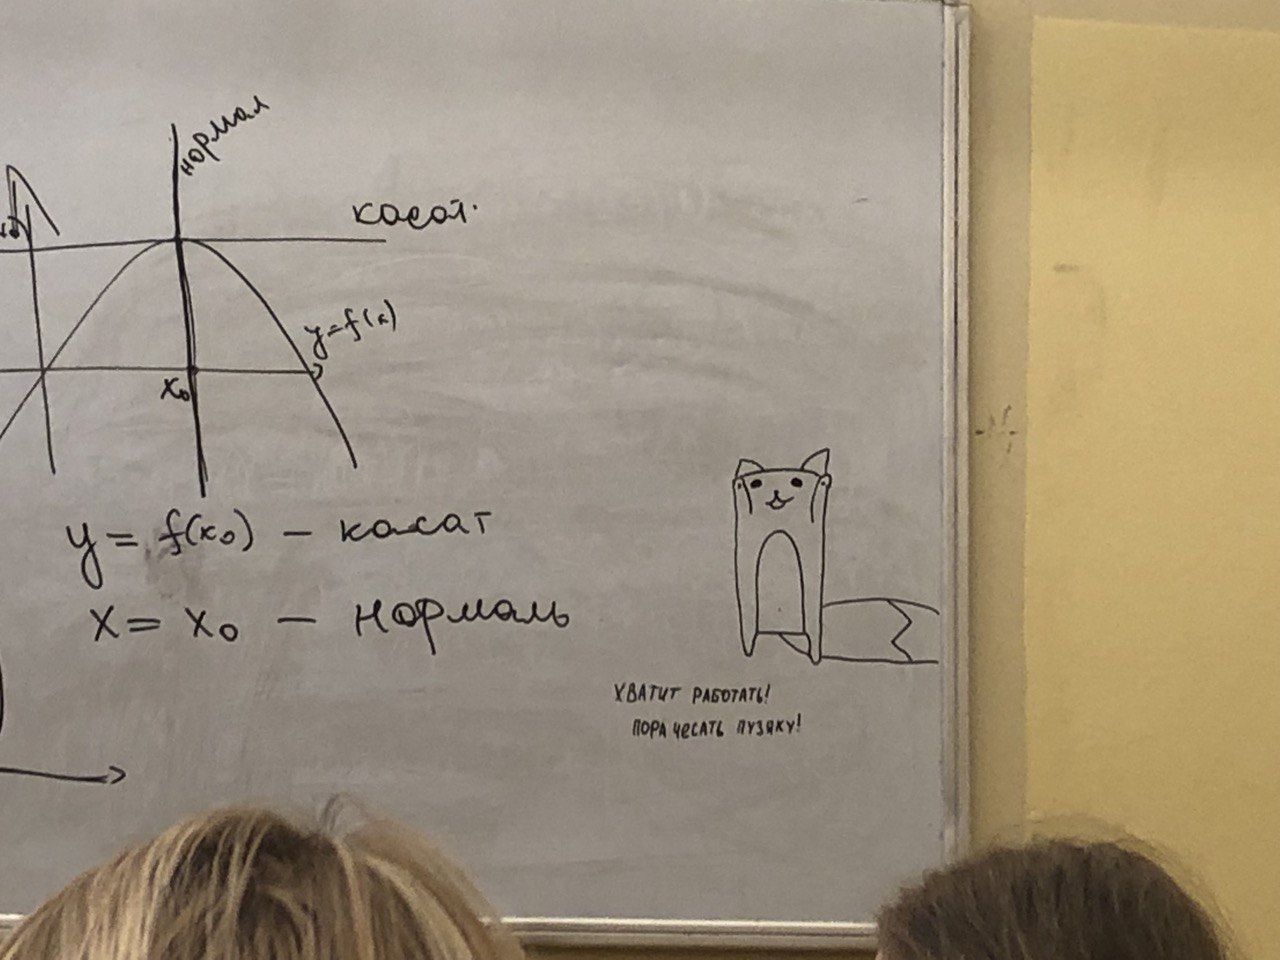 нормал
касат.
y=f(x)
x₀
y = f(x₀) – касат
x = x₀ – нормаль
ХВАТИТ РАБОТАТЬ!
ПОРА ЧЕСАТЬ ПУЗЯКУ!